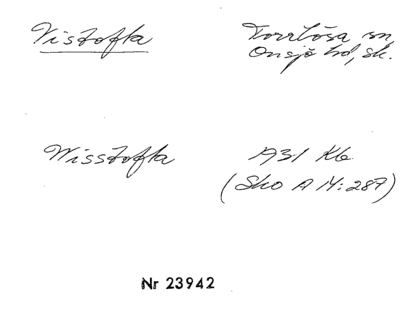 Vistofta Torrlösa sn,
Onsjö hd, sk.
Wisstofta 1931 Kb
(Sko A 14:287)
Nr 23942